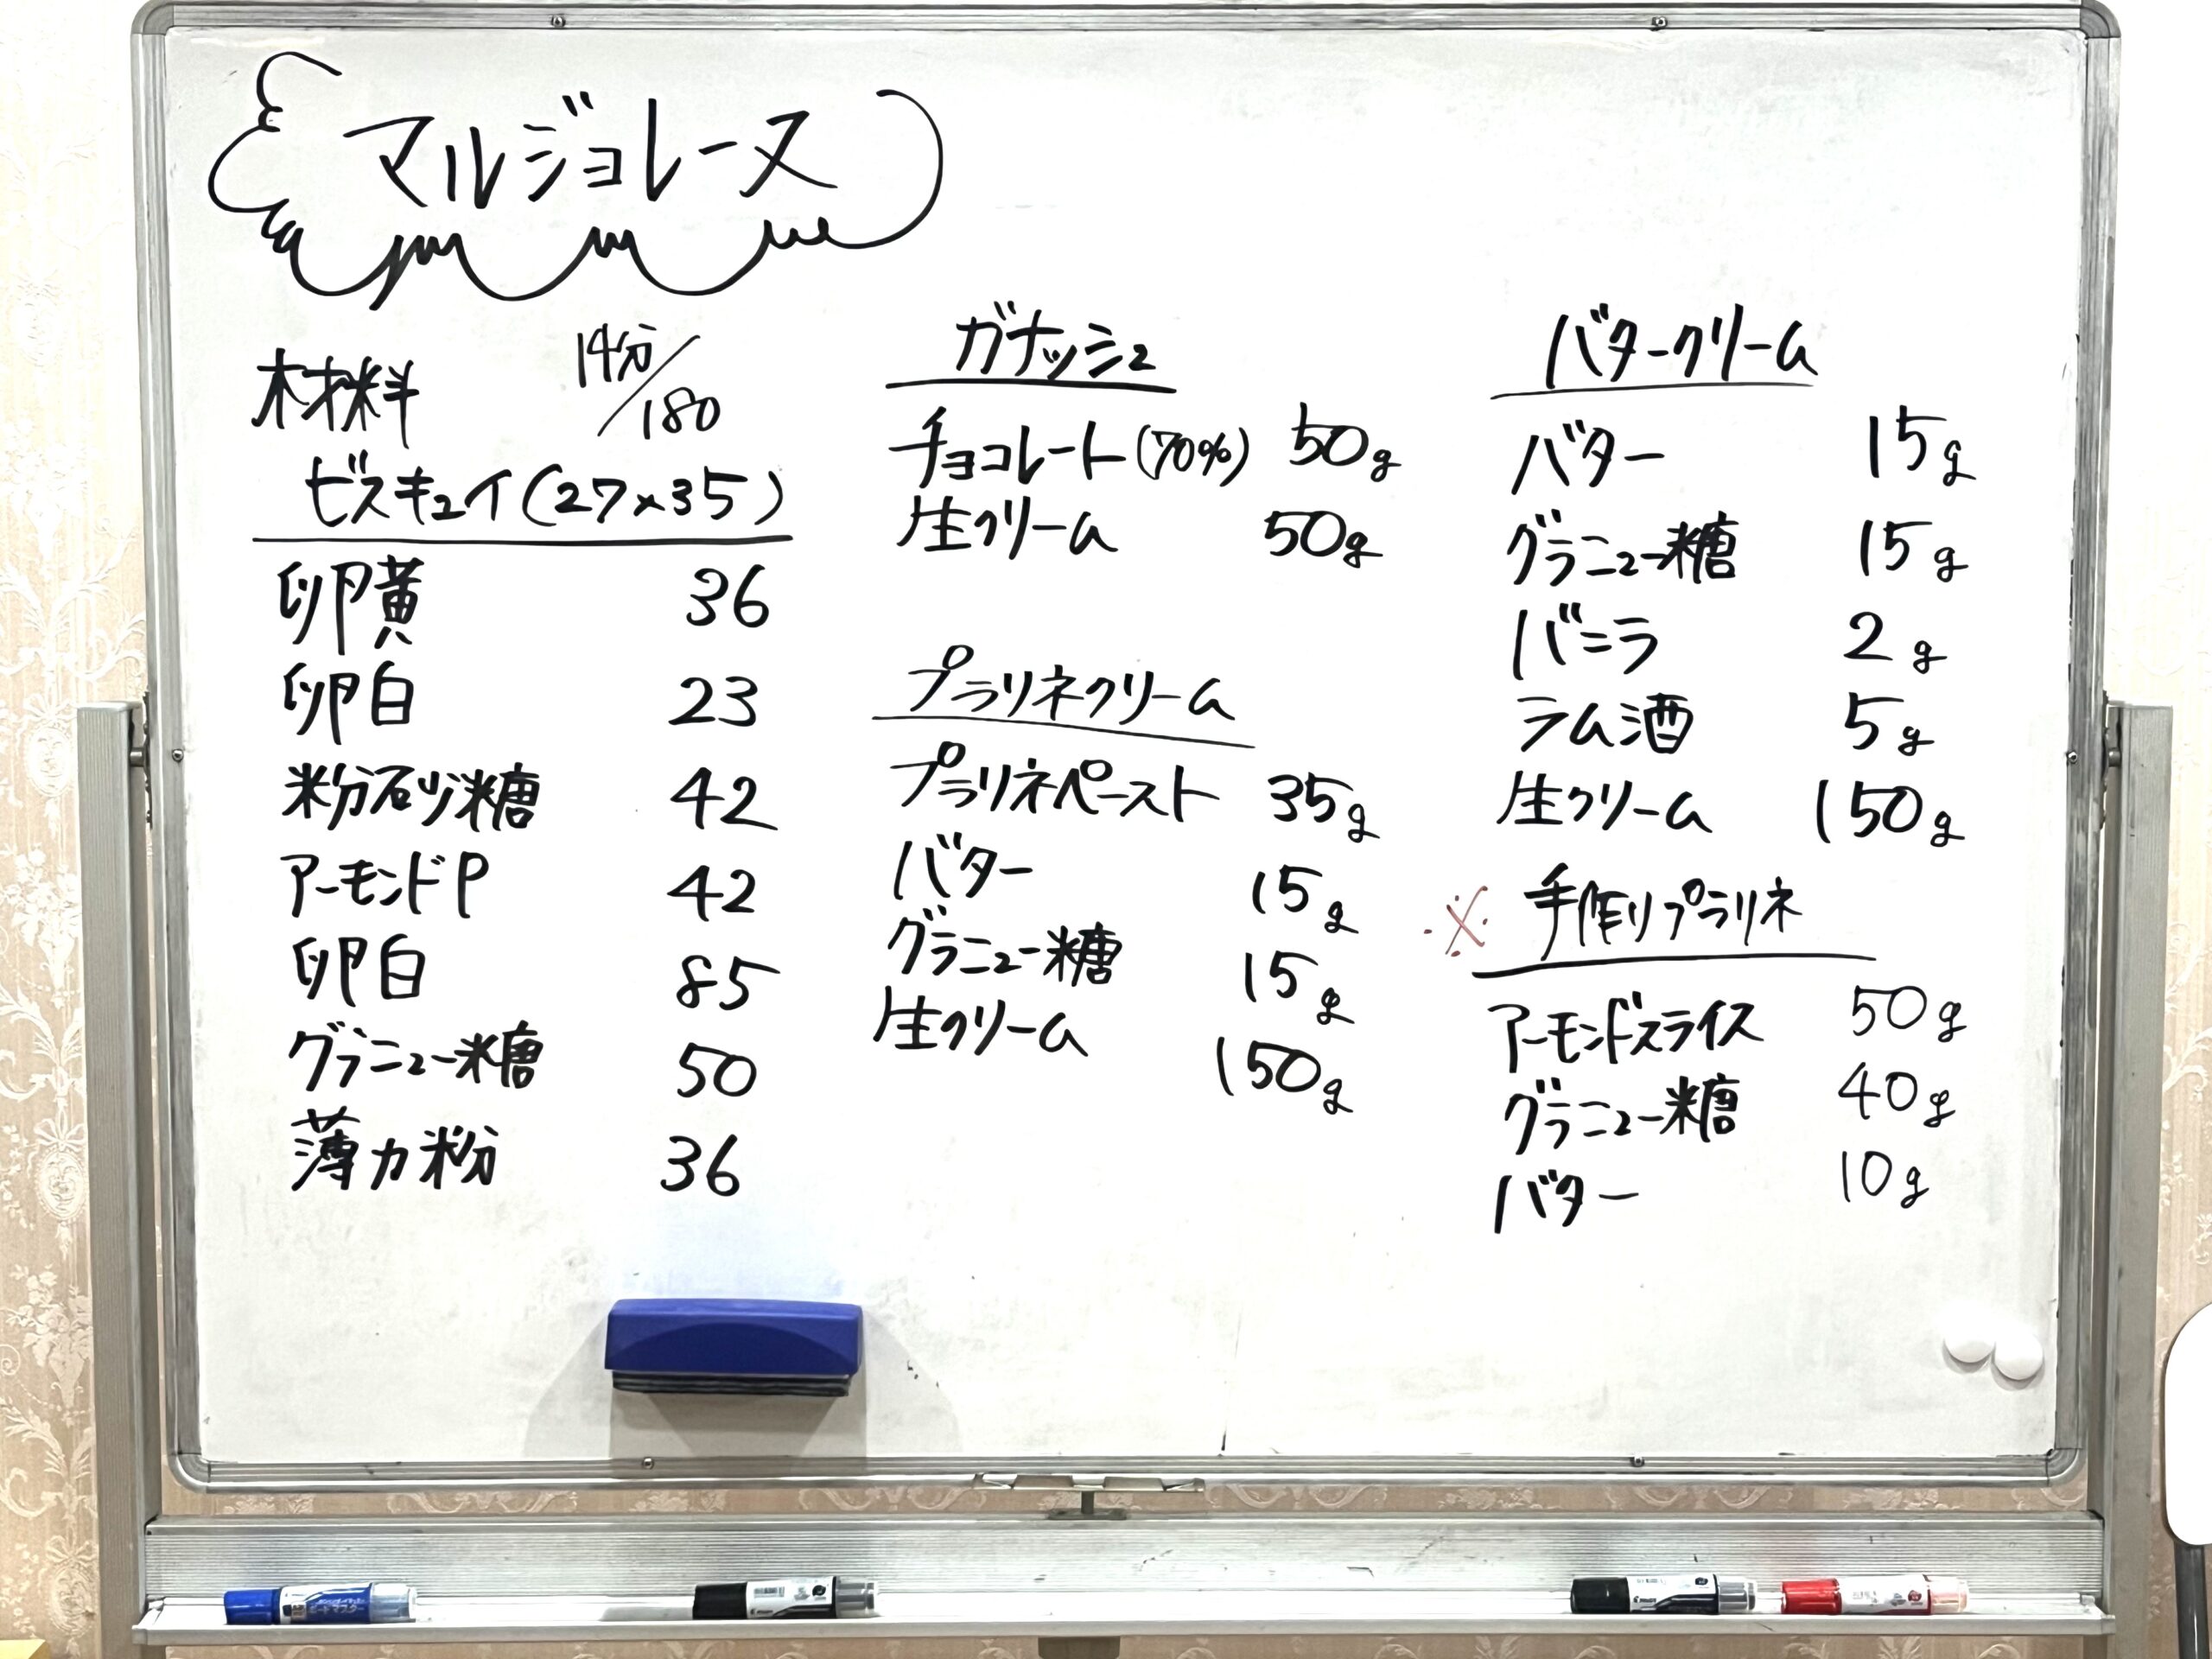 マルジョレーヌ
材料 14分/180
ビスキュイ(27×35)
卵黄 36
卵白 23
粉砂糖 42
アーモンドP 42
卵白 85
グラニュー糖 50
薄力粉 36
ガナッシュ
チョコレート(70%) 50g
生クリーム 50g
プラリネクリーム
プラリネペースト 35g
バター 15g
グラニュー糖 15g
生クリーム 150g
バタークリーム
バター 15g
グラニュー糖 15g
バニラ 2g
ラム酒 5g
生クリーム 150g
※ 手作りプラリネ
アーモンドスライス 50g
グラニュー糖 40g
バター 10g